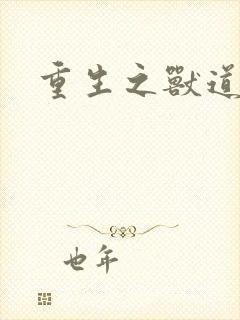 重生之獸道
也年